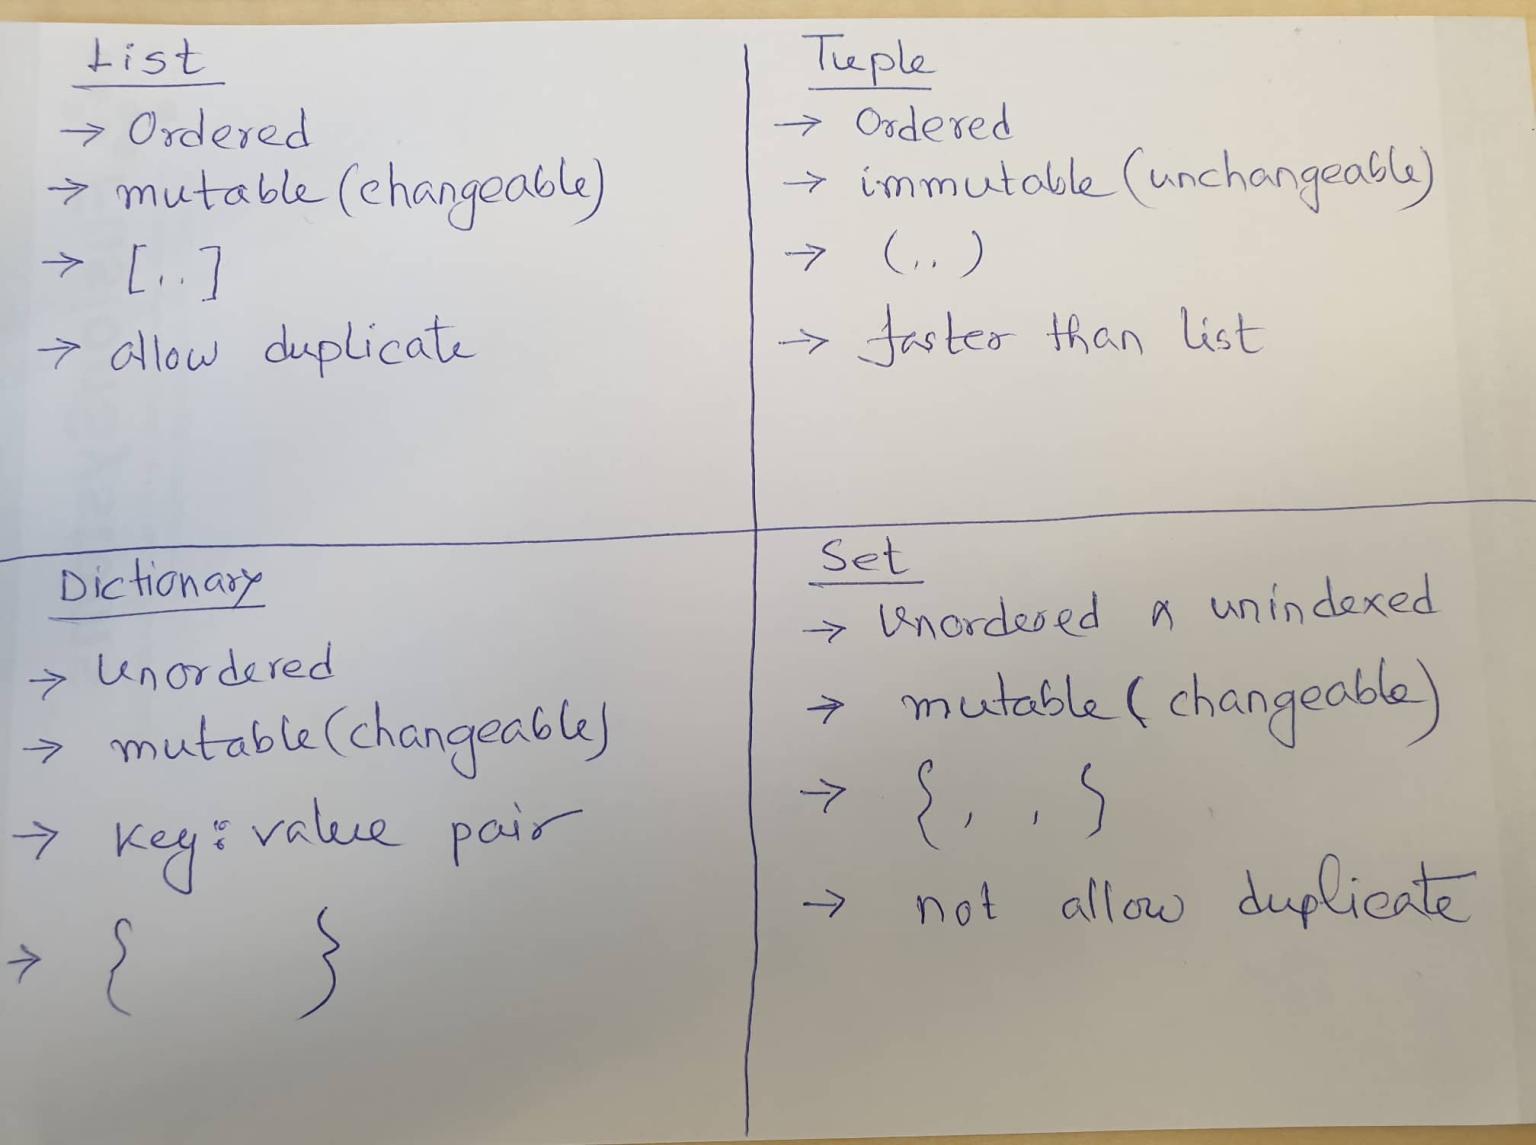 List
→ Ordered
→ mutable (changeable)
→ [..]
→ allow duplicate
Tuple
→ Ordered
→ immutable (unchangeable)
→ (..)
→ faster than list
Dictionary
→ Unordered
→ mutable (changeable)
→ key: value pair
→ { }
Set
→ Unordered & unindexed
→ mutable (changeable)
→ {, , }
→ not allow duplicate